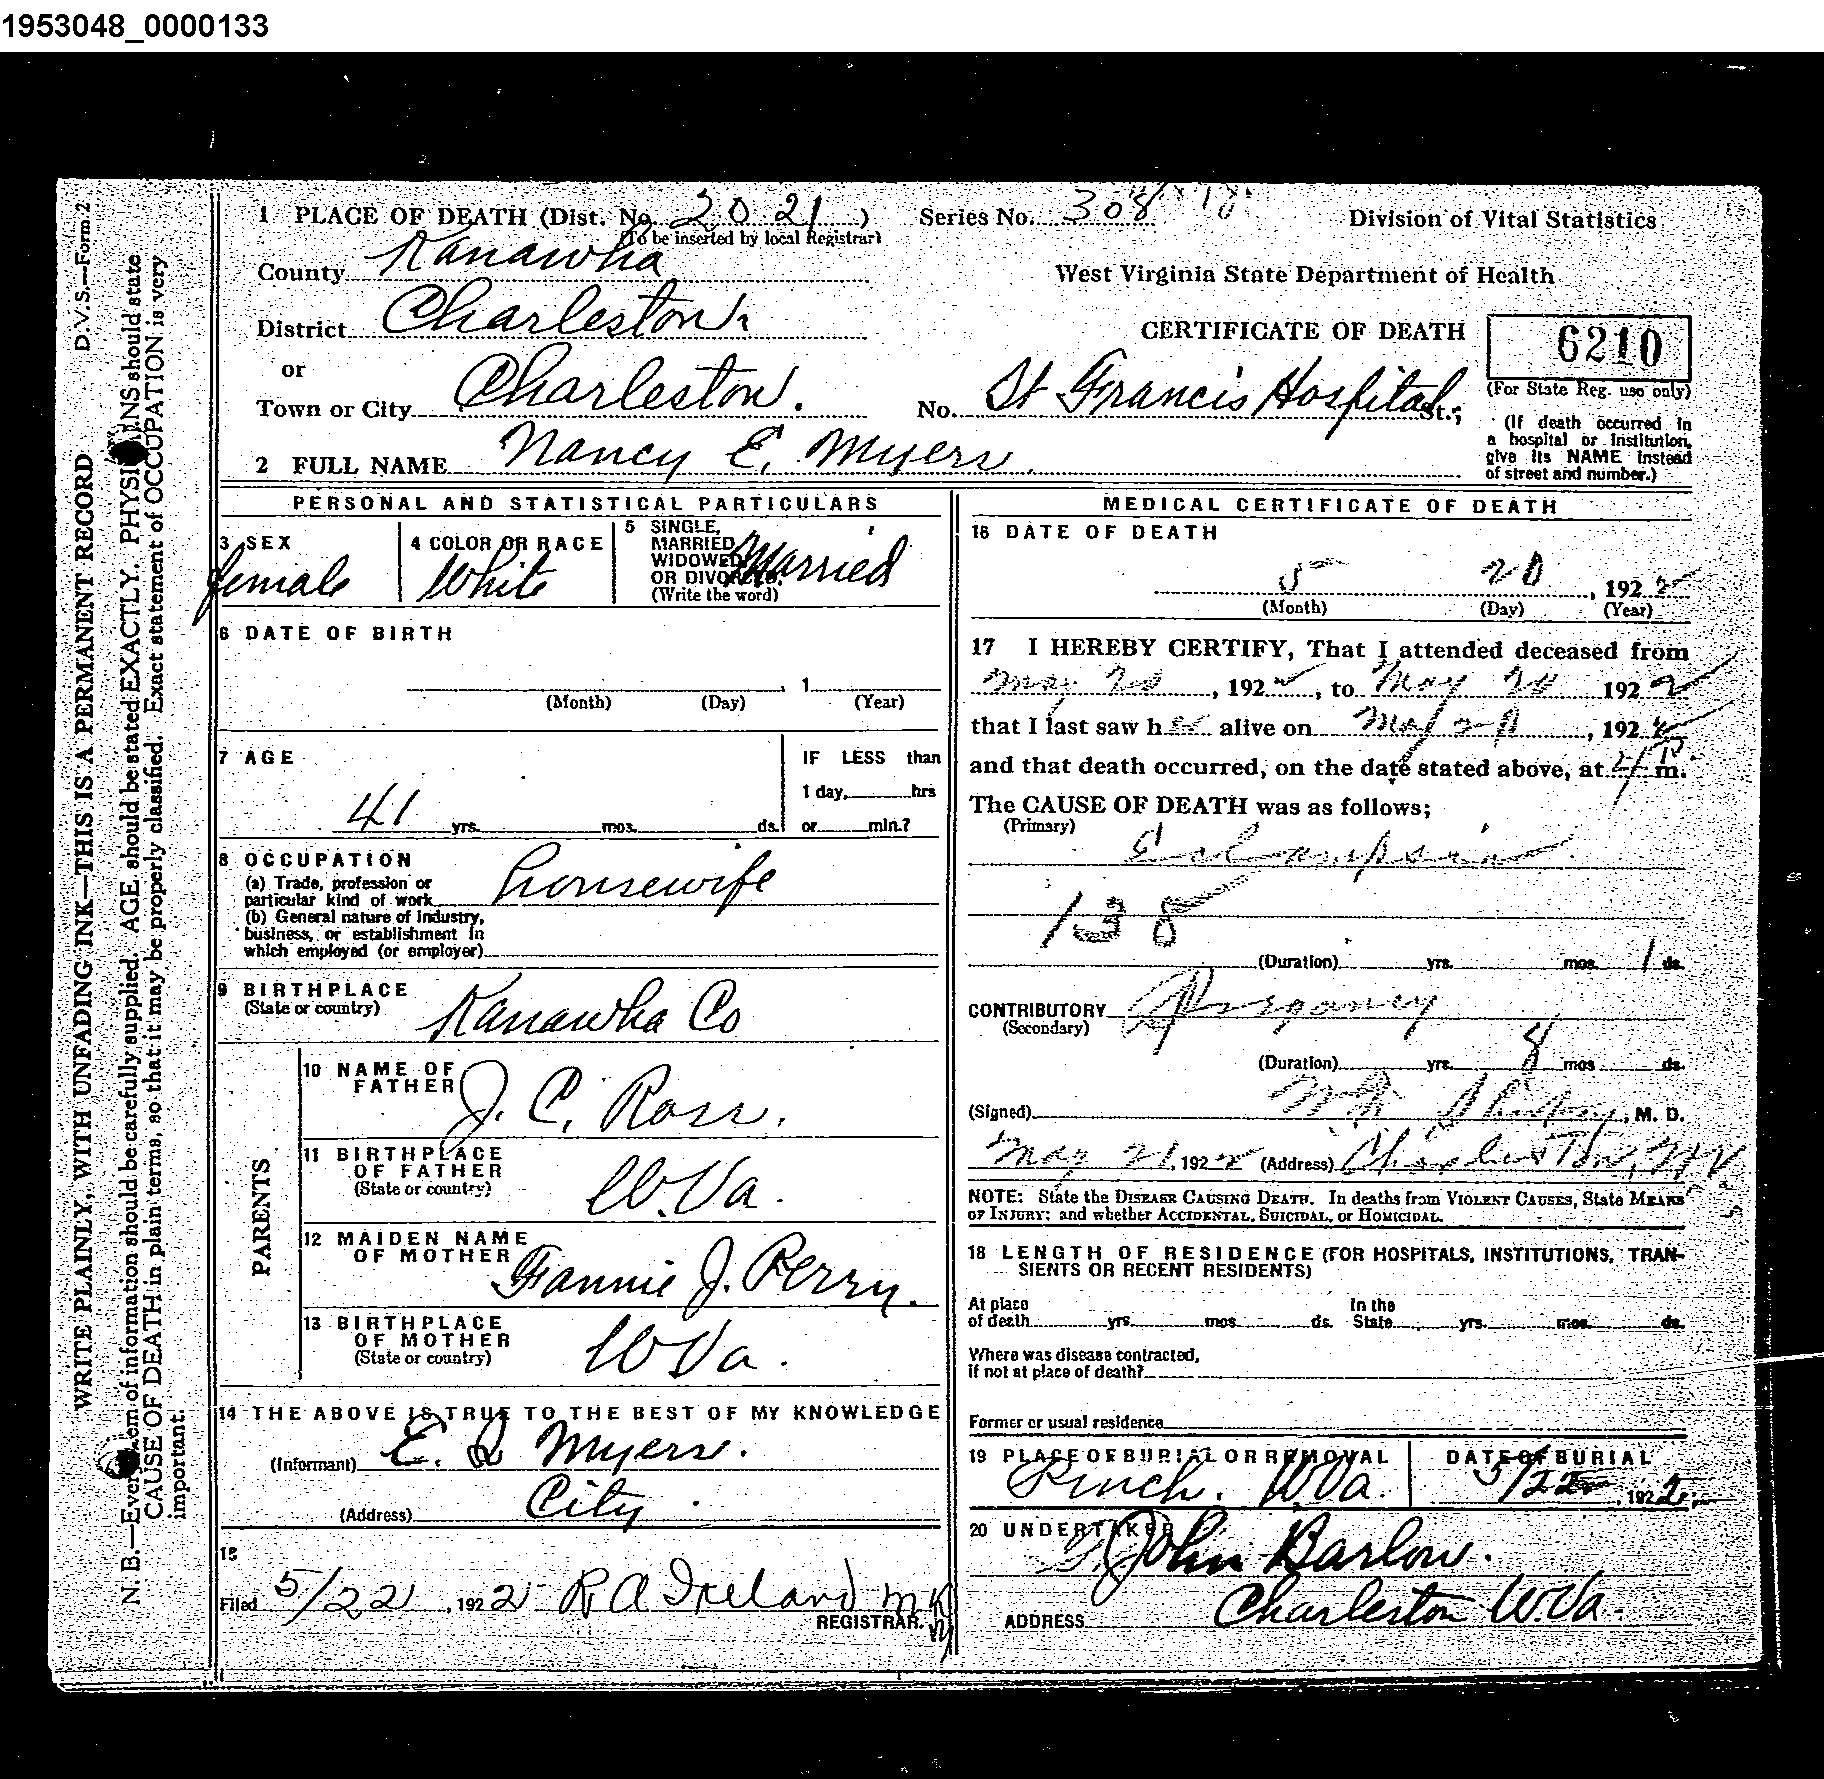 1953048_0000133
D.V.S.—Form 2
WRITE PLAINLY, WITH UNFADING INK—THIS IS A PERMANENT RECORD
N. B.—Every item of information should be carefully supplied. AGE should be stated EXACTLY. PHYSICIANS should state
CAUSE OF DEATH in plain terms, so that it may be properly classified. Exact statement of OCCUPATION is very
important.
1 PLACE OF DEATH (Dist. No. 20 21 ) Series No. 308
(To be inserted by local Registrar)
Division of Vital Statistics
County Kanawha
West Virginia State Department of Health
District Charleston
CERTIFICATE OF DEATH
6210
(For State Reg. use only)
or
Town or City Charleston. No. St Francis Hospital St.;
(If death occurred in
a hospital or institution,
give its NAME instead
of street and number.)
2 FULL NAME Nancy E. Myers.
PERSONAL AND STATISTICAL PARTICULARS
3 SEX
female
4 COLOR OR RACE
White
5 SINGLE,
MARRIED
WIDOWED
OR DIVORCED,
(Write the word)
Married
6 DATE OF BIRTH
, 1
(Month) (Day) (Year)
7 AGE
41 yrs. mos. ds.
IF LESS than
1 day, hrs
or min.?
8 OCCUPATION
(a) Trade, profession or
particular kind of work housewife
(b) General nature of Industry,
business, or establishment in
which employed (or employer)
9 BIRTHPLACE
(State or country) Kanawha Co
PARENTS
10 NAME OF
FATHER J. C. Ross.
11 BIRTHPLACE
OF FATHER
(State or country) W.Va.
12 MAIDEN NAME
OF MOTHER Fannie J. Perry.
13 BIRTHPLACE
OF MOTHER
(State or country) W Va.
14 THE ABOVE IS TRUE TO THE BEST OF MY KNOWLEDGE
(Informant) E. Myers.
(Address) City.
15
Filed 5/22, 1922 R A Ireland
REGISTRAR.
MEDICAL CERTIFICATE OF DEATH
16 DATE OF DEATH
5 20, 1922
(Month) (Day) (Year)
17 I HEREBY CERTIFY, That I attended deceased from
May 20, 1922, to May 20 1922
that I last saw her alive on May 20, 1922
and that death occurred, on the date stated above, at 4 P m.
The CAUSE OF DEATH was as follows;
(Primary)
Eclampsia
138
(Duration) yrs. mos. 1 ds.
CONTRIBUTORY Pregnancy
(Secondary)
(Duration) yrs. 8 mos ds.
(Signed) , M. D.
May 21, 1922 (Address) Charleston, W V
NOTE: State the DISEASE CAUSING DEATH. In deaths from VIOLENT CAUSES, State MEANS
OF INJURY; and whether ACCIDENTAL, SUICIDAL, or HOMICIDAL.
18 LENGTH OF RESIDENCE (FOR HOSPITALS, INSTITUTIONS, TRAN-
SIENTS OR RECENT RESIDENTS)
At place
of death yrs. mos. ds.
In the
State yrs. mos. ds.
Where was disease contracted,
if not at place of death?
Former or usual residence
19 PLACE OF BURIAL OR REMOVAL
W.Va.
DATE OF BURIAL
5/22, 1922
20 UNDERTAKER
John Barlow.
ADDRESS Charleston W.Va.